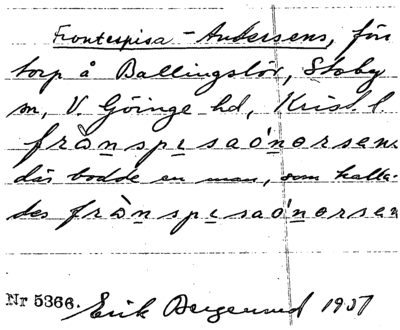 Frontespisa-Andersens, förr
torp å Ballingslöv, Stoby
sn, V. Göinge hd, Krist. l.
frànspɩsaónɘrsen
där bodde en man, som kalla-
des frànspɩsaónɘrsen
Nr 5366. Erik Bergerud 1937